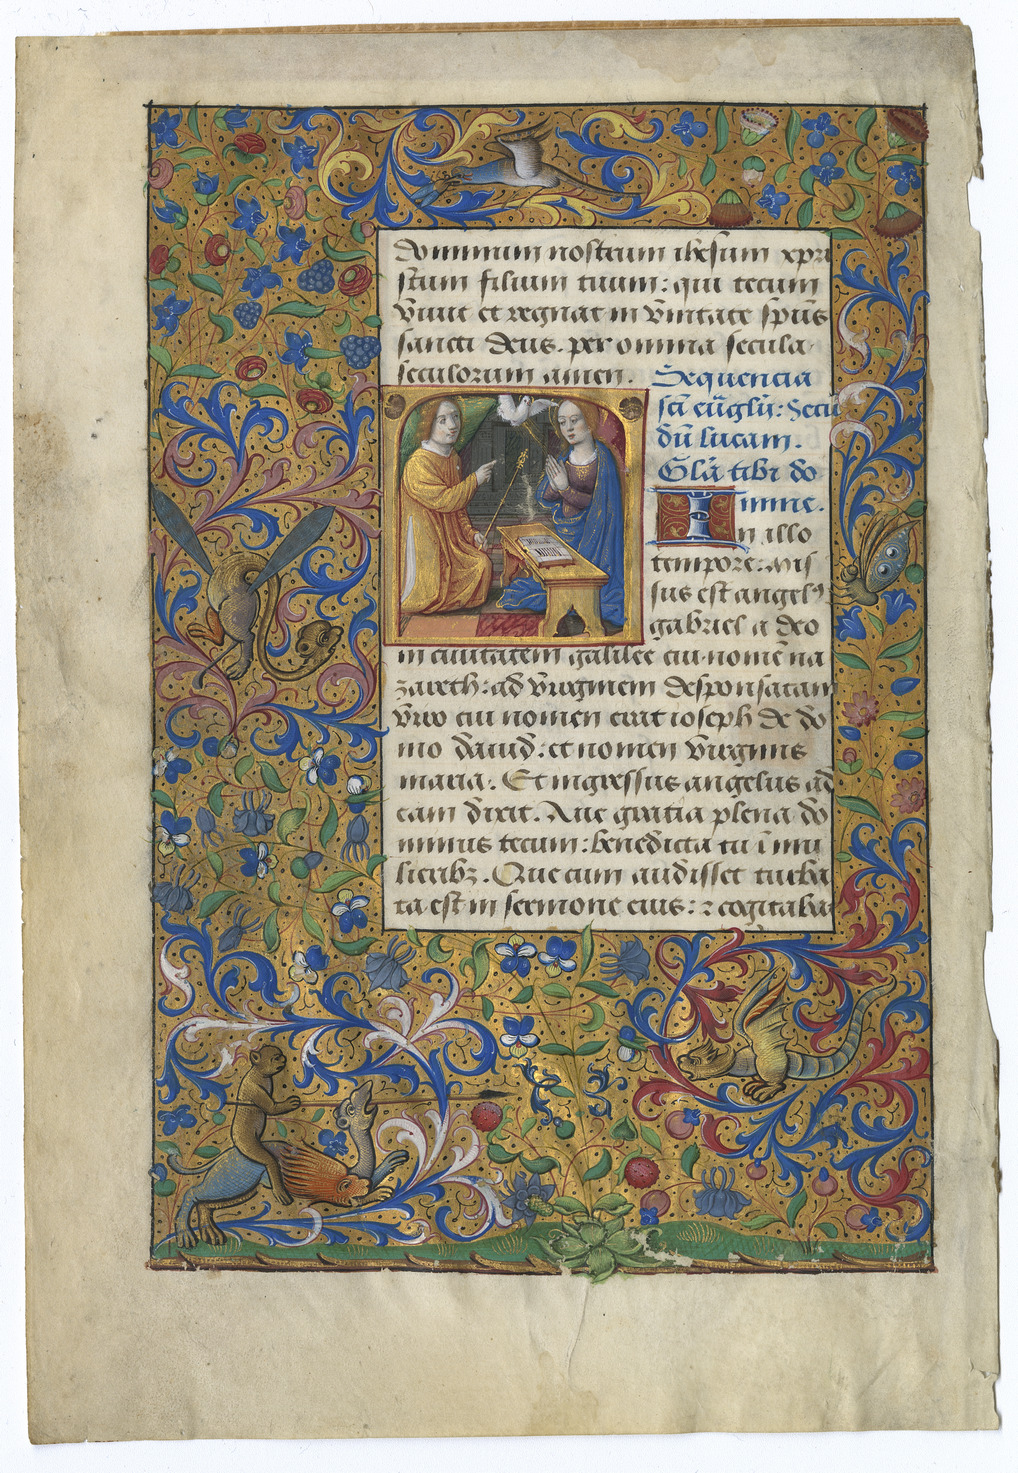 dominum nostrum ihesum xpri
stum filium tuum: qui tecum
viuit et regnat in vnitate sp̃us
sancti deus. per omnia secula
seculorum amen. Sequencia
sc̃i eũglij: Secũ
dũ lucam.
Glã tibi do
mine.
In illo
tempore: mis
sus est angelꝰ
gabriel a deo
in ciuitatem galilee cui nomẽ na
zareth: ad virginem desponsatam
viro cui nomen erat ioseph de do
mo dauid: et nomen virginis
maria. Et ingressus angelus ad
eam dixit. Aue gratia plena do
minus tecum: benedicta tu ĩ mu
lieribꝫ. Que cum audisset turba
ta est in sermone eius: ⁊ cogitabat